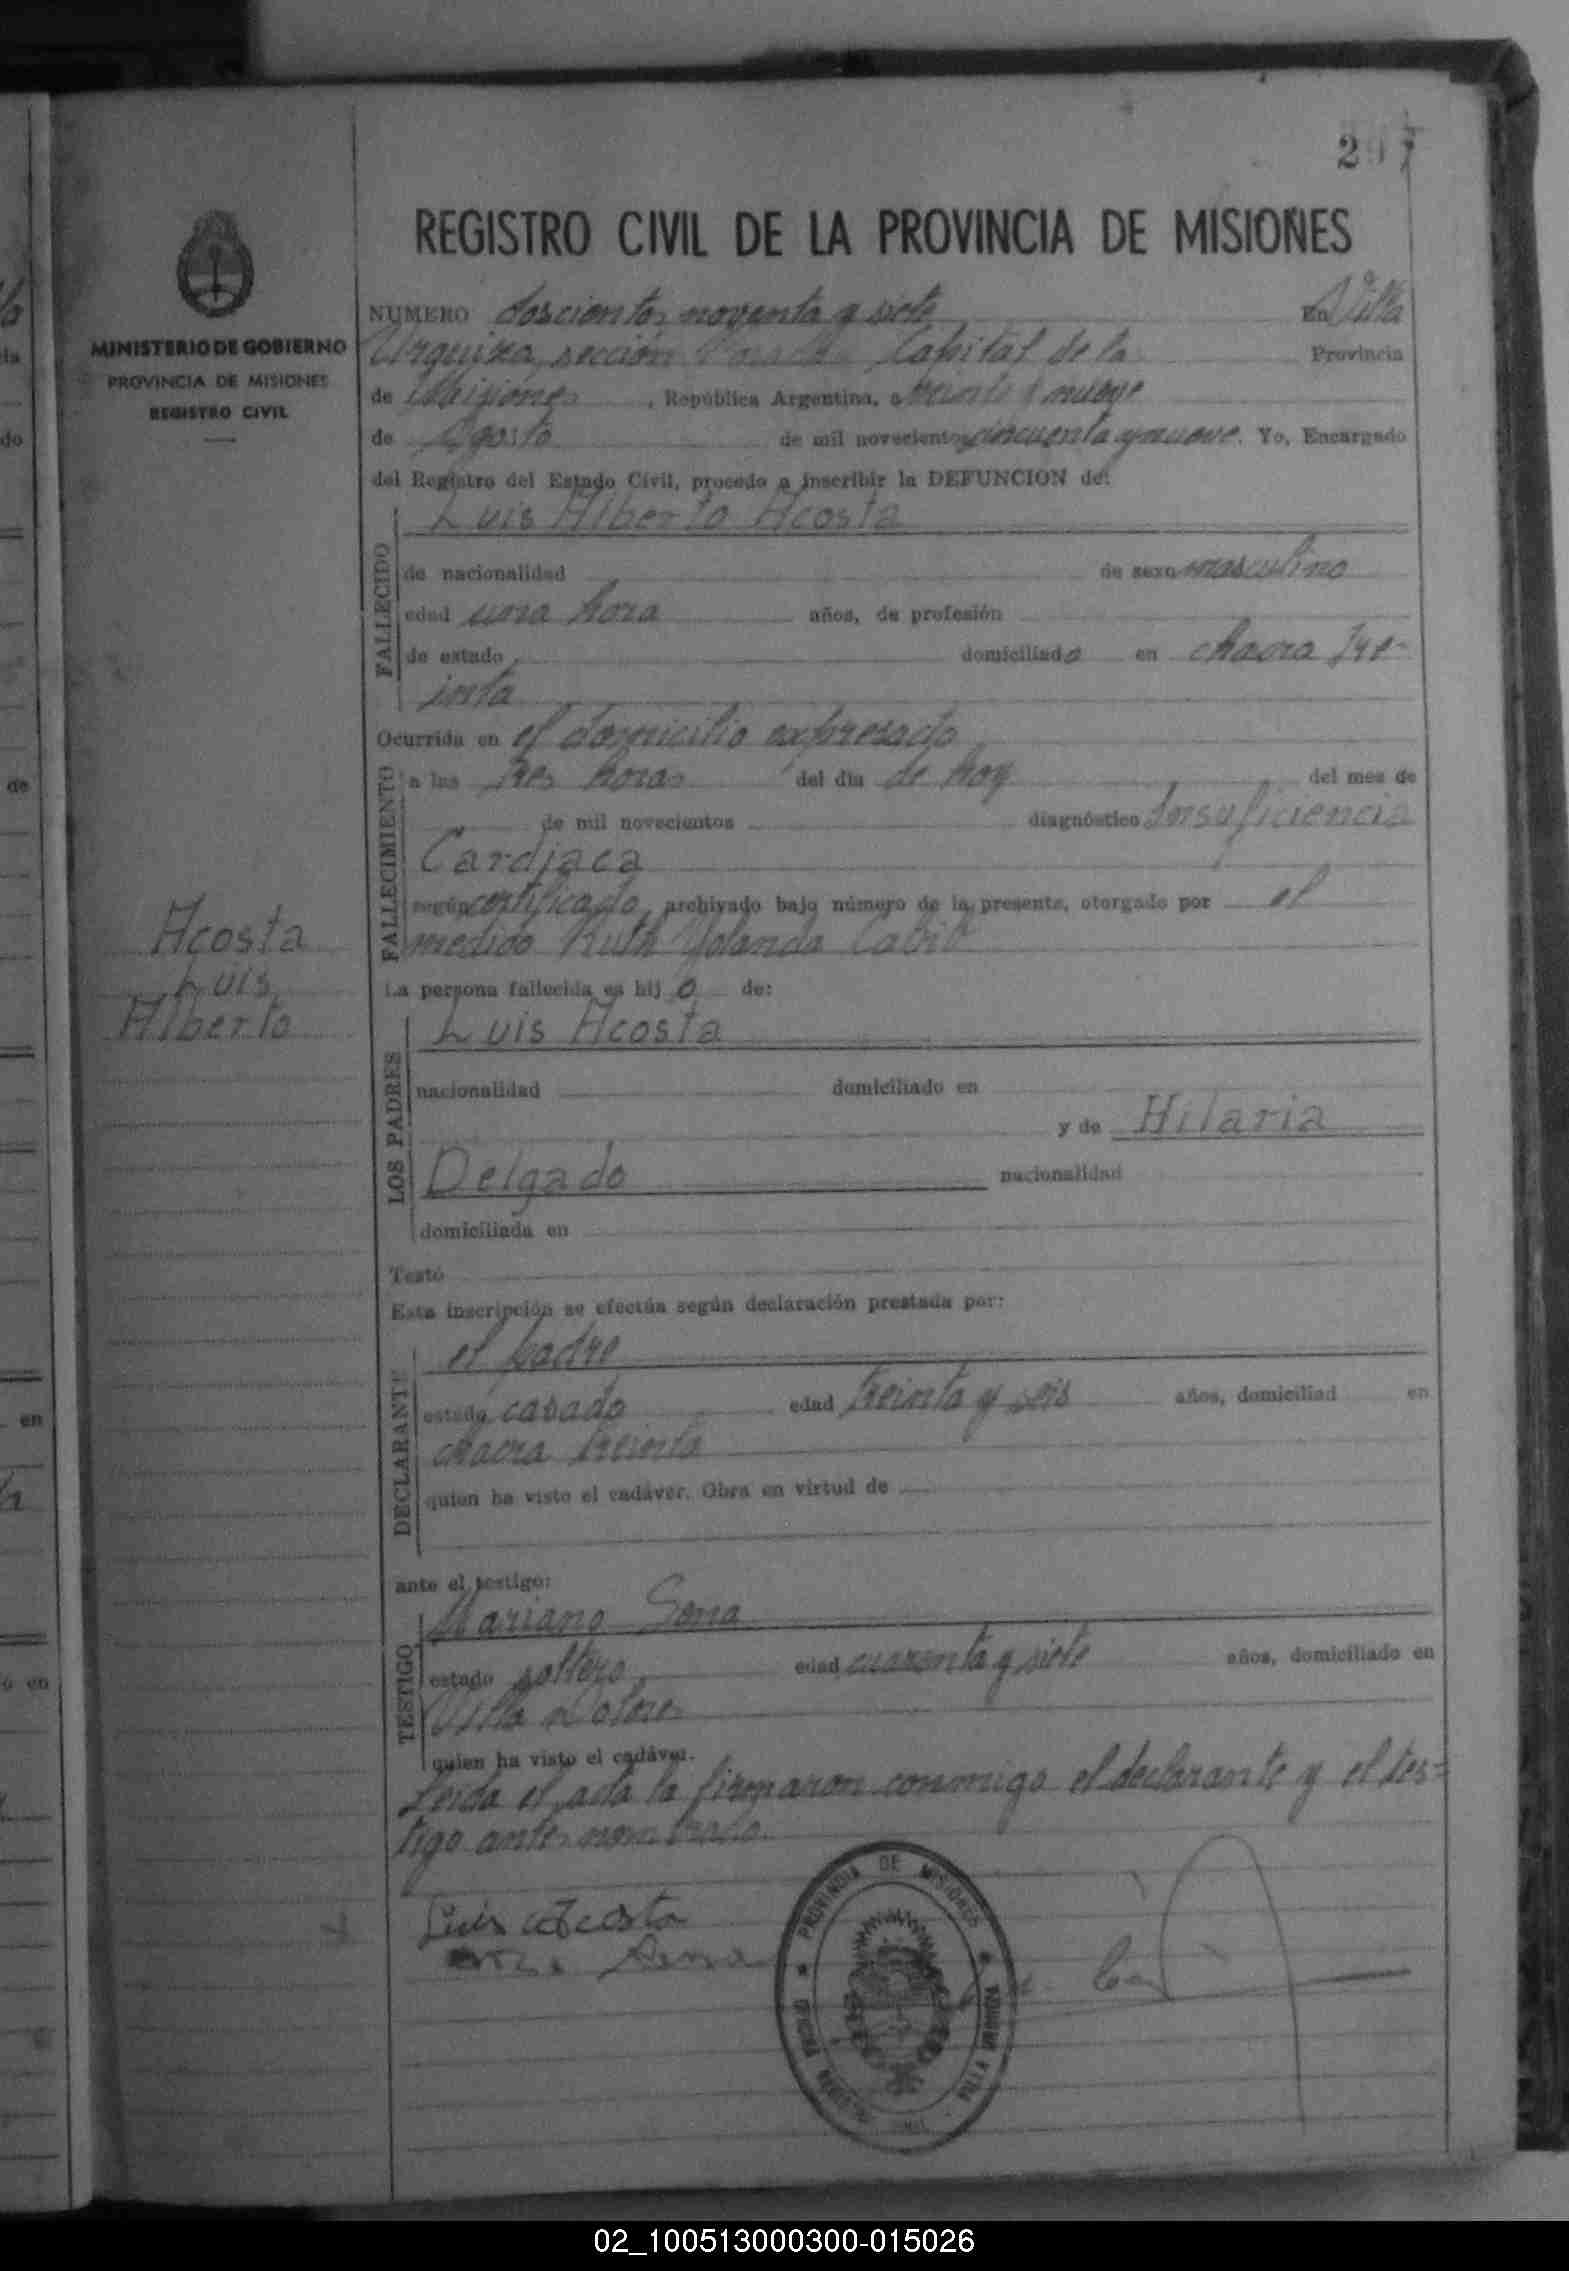 297
REGISTRO CIVIL DE LA PROVINCIA DE MISIONES
MINISTERIO DE GOBIERNO
PROVINCIA DE MISIONES
REGISTRO CIVIL
NUMERO doscientos noventa y siete En Villa
Urquiza, sección Capital de la Provincia
de Misiones, República Argentina, a veinte y nueve
de Agosto de mil novecientos cincuenta y nueve. Yo, Encargado
del Registro del Estado Civil, procedo a inscribir la DEFUNCION de:
Luis Alberto Acosta
FALLECIDO
de nacionalidad de sexo masculino
edad una hora años, de profesión
de estado domiciliado en chacra tre-
inta
Ocurrida en el domicilio expresado
FALLECIMIENTO
a las tres horas del día de hoy del mes de
de mil novecientos diagnóstico Insuficiencia
Cardiaca
según certificado, archivado bajo número de la presente, otorgado por el
medido Ruth Yolanda
Acosta
Luis
Alberto
La persona fallecida es hijo de:
LOS PADRES
Luis Acosta
nacionalidad domiciliado en
y de Hilaria
Delgado nacionalidad
domiciliada en
Testó
Esta inscripción se efectúa según declaración prestada por:
DECLARANTE
el padre
estado casado edad treinta y seis años, domiciliad en
chacra treinta
quien ha visto el cadáver. Obra en virtud de
ante el testigo:
TESTIGO
Mariano Sena
estado soltero edad cuarenta y siete años, domiciliado en
Villa Dolores
quien ha visto el cadáver.
Leida el acta la firmaron conmigo el declarante y el tes=
tigo antes nombrado.
Luis Acosta
Sena
PROVINCIA DE MISIONES
02_100513000300-015026